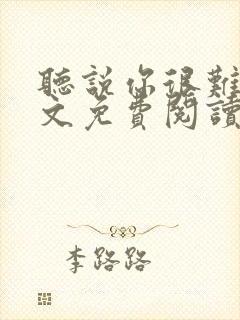 聽說你很難
文免費閱讀
李路路